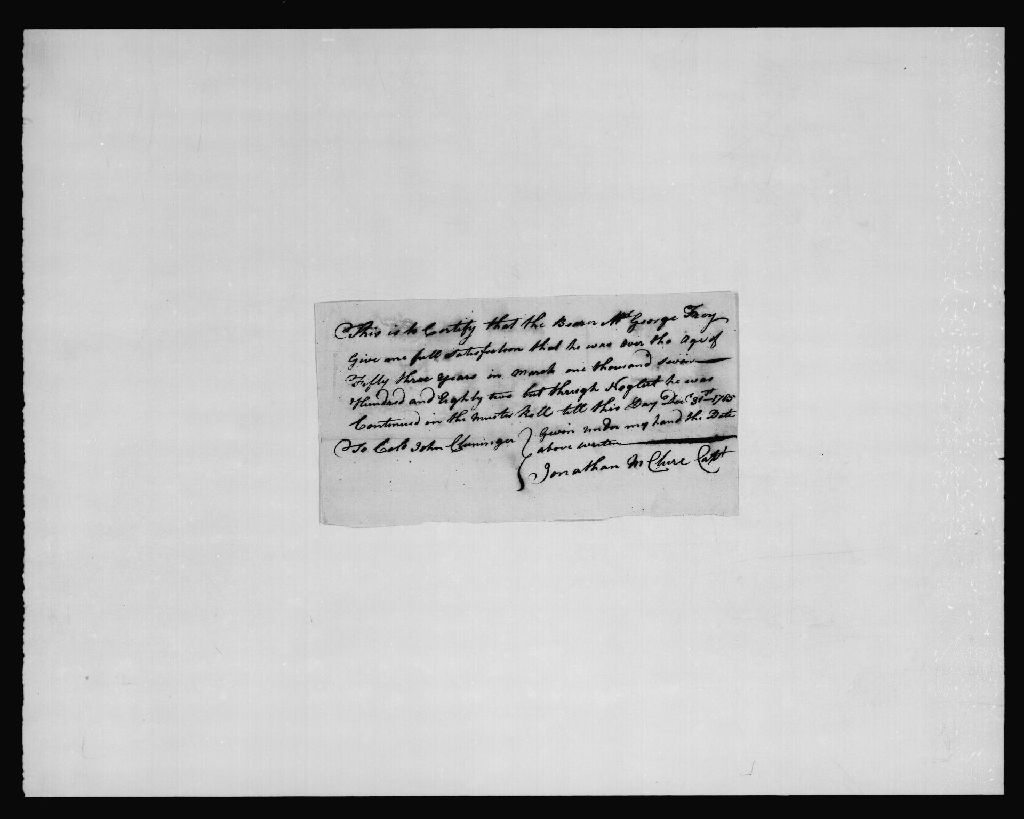 This is to Certify that the Bearer Mr George Troy
Give me full satisfaction that he was over the age of
Fifty three years in march one thousand seven
Hundred and Eighty two but through Neglect he was
Continued on the muster Roll till this Day Decr 31st 1785
To Coll John Cluninger } Given under my hand the Date
above writen
Jonathan McClure Capt